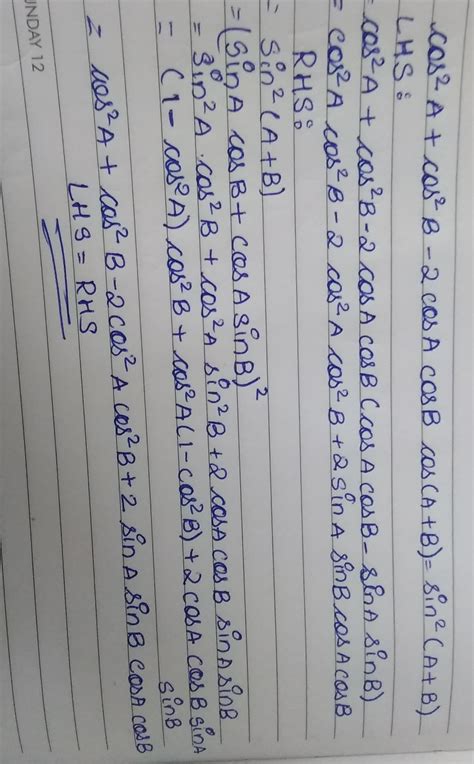 cos²A + cos²B - 2 cosA cosB cos(A+B) = sin²(A+B)
LHS:
= cos²A + cos²B - 2 cosA cosB (cosA cosB - sinA sinB)
= cos²A cos²B - 2 cos²A cos²B + 2 sinA sinB cosA cosB
RHS:
= sin²(A+B)
= (sinA cosB + cosA sinB)²
= sin²A . cos²B + cos²A sin²B + 2 cosA cosB sinA sinB
= (1 - cos²A) cos²B + cos²A (1 - cos²B) + 2 cosA cosB sinA
sinB
= cos²A + cos²B - 2 cos²A cos²B + 2 sinA sinB cosA cosB
LHS = RHS
UNDAY 12